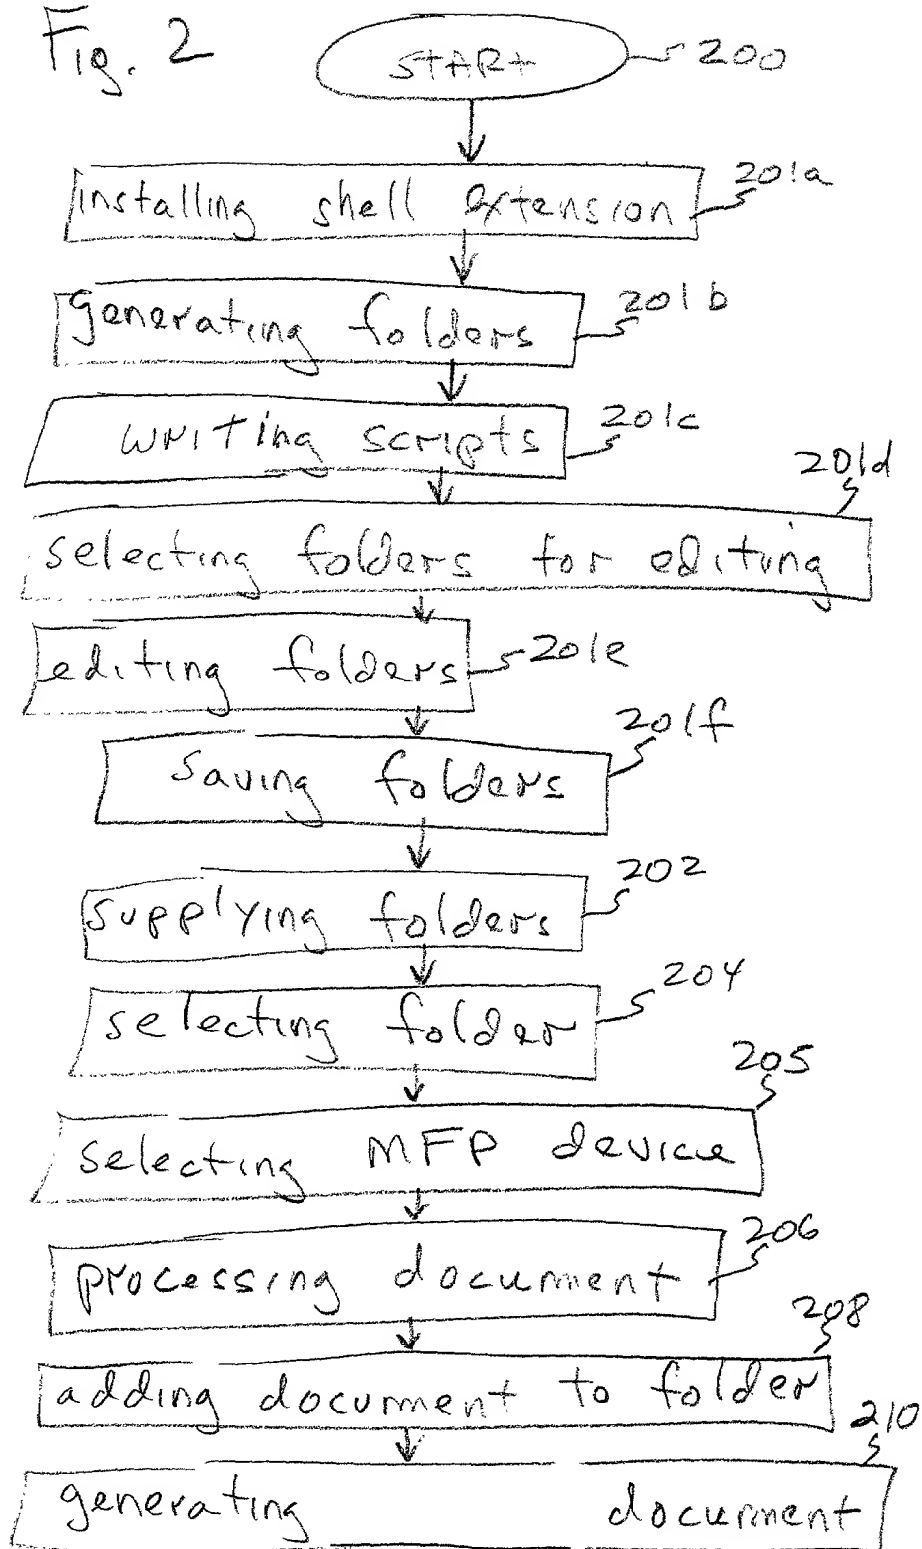 Fig. 2
START 200
installing shell extension 201a
generating folders 201b
writing scripts 201c
201d
selecting folders for editing
editing folders 201e
201f
saving folders
202
supplying folders
204
selecting folder
205
selecting MFP device
206
processing document
208
adding document to folder
210
generating document